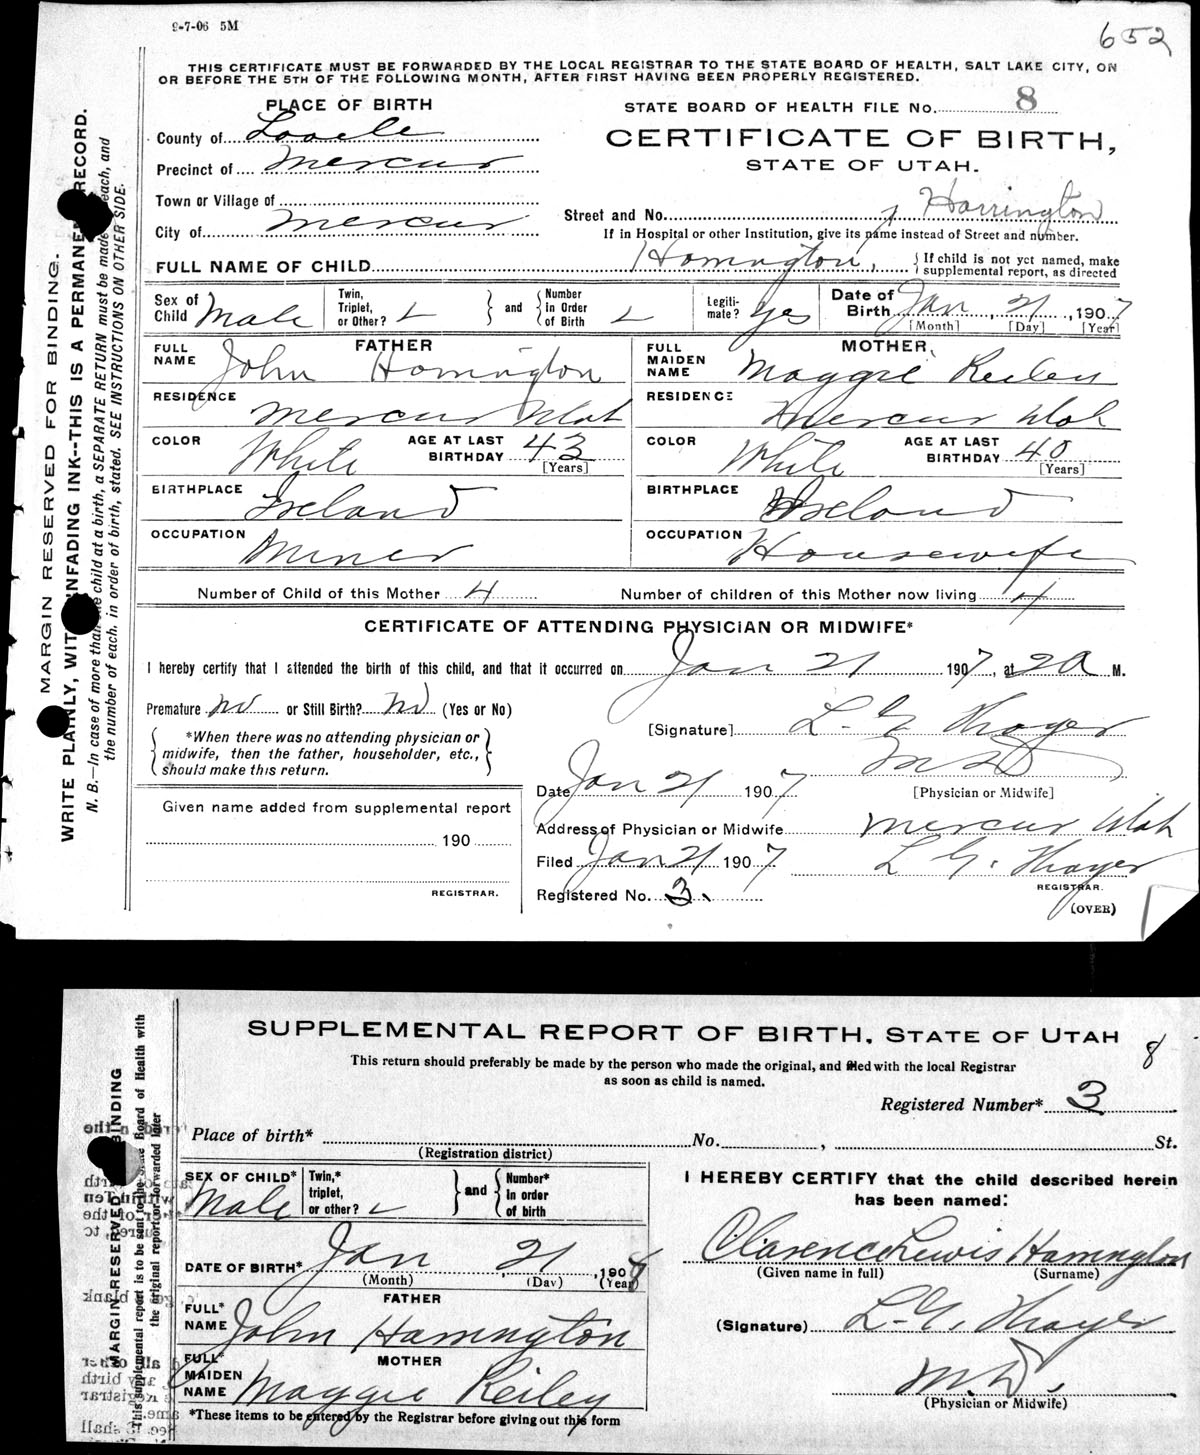 9-7-06 5M
652
THIS CERTIFICATE MUST BE FORWARDED BY THE LOCAL REGISTRAR TO THE STATE BOARD OF HEALTH, SALT LAKE CITY, ON
OR BEFORE THE 5TH OF THE FOLLOWING MONTH, AFTER FIRST HAVING BEEN PROPERLY REGISTERED.
MARGIN RESERVED FOR BINDING.
WRITE PLAINLY, WITH UNFADING INK--THIS IS A PERMANENT RECORD.
N. B.—In case of more than one child at a birth, a SEPARATE RETURN must be made for each, and
the number of each, in order of birth, stated. SEE INSTRUCTIONS ON OTHER SIDE.
PLACE OF BIRTH
County of Tooele
Precinct of Mercur
Town or Village of
City of Mercur
STATE BOARD OF HEALTH FILE No. 8
CERTIFICATE OF BIRTH,
STATE OF UTAH.
Street and No. Harrington
If in Hospital or other Institution, give its name instead of Street and number.
FULL NAME OF CHILD Harrington, { If child is not yet named, make
supplemental report, as directed
Sex of Child Male
Twin, Triplet, or Other?
and
Number In Order of Birth
Legiti-mate? Yes
Date of Birth Jan 21, 1907
[Month] [Day] [Year]
FATHER
FULL NAME John Harrington
RESIDENCE Mercur Utah
COLOR White AGE AT LAST BIRTHDAY 43
[Years]
BIRTHPLACE Ireland
OCCUPATION Miner
MOTHER
FULL MAIDEN NAME Maggie Reiley
RESIDENCE Mercur Utah
COLOR White AGE AT LAST BIRTHDAY 40
[Years]
BIRTHPLACE Ireland
OCCUPATION Housewife
Number of Child of this Mother 4 Number of children of this Mother now living 4
CERTIFICATE OF ATTENDING PHYSICIAN OR MIDWIFE*
I hereby certify that I attended the birth of this child, and that it occurred on Jan 21 1907, at 2 A M.
Premature No or Still Birth? No (Yes or No)
*When there was no attending physician or
midwife, then the father, householder, etc.,
should make this return.
[Signature] L. G. Thayer
M D
[Physician or Midwife]
Date Jan 21 1907
Address of Physician or Midwife Mercur Utah
Filed Jan 21 1907 L. G. Thayer
REGISTRAR.
Registered No. 3.
(OVER)
Given name added from supplemental report
190
REGISTRAR.
SUPPLEMENTAL REPORT OF BIRTH, STATE OF UTAH
8
This return should preferably be made by the person who made the original, and filed with the local Registrar
as soon as child is named.
MARGIN RESERVED BINDING
This supplemental report is to be sent to the State Board of Health with
the original report or forwarded later
Registered Number* 3
Place of birth* No. , St.
(Registration district)
SEX OF CHILD* Male
Twin,* triplet, or other?
and
Number* In order of birth
DATE OF BIRTH* Jan 21, 1908
(Month) (Day) (Year)
FATHER
FULL* NAME John Harrington
MOTHER
FULL* MAIDEN NAME Maggie Reiley
*These items to be entered by the Registrar before giving out this form
I HEREBY CERTIFY that the child described herein
has been named:
Clarence Lewis Harrington
(Given name in full) (Surname)
(Signature) L. G. Thayer
M.D.
(Physician or Midwife)